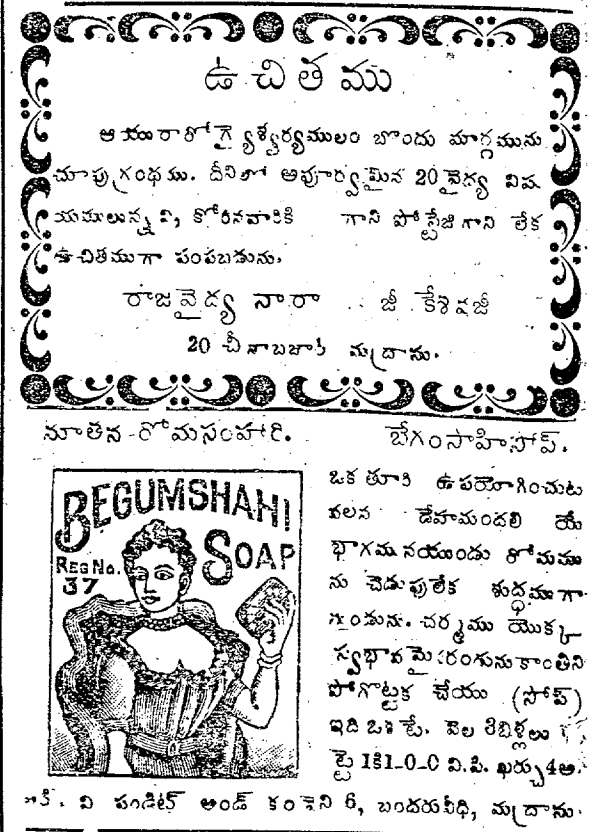 ఉచితము
ఆయురారోగ్యైశ్వర్యములం బొందు మార్గమును
చూపుగ్రంథము. దీనిలో అపూర్వమైన 20 వైద్య విష
యములున్నవి, కోరినవారికి గాని పోస్టేజిగాని లేక
ఉచితముగా పంపబడును.
రాజవైద్య నారా జీ కేశవజీ
20 చీనాబజారి మద్రాసు.
నూతన రోమసంహారి.
బేగంసాహిసోప్.
BEGUMSHAHI
SOAP
REG No.
37
ఒక తూరి ఉపయోగించుట
వలన దేహమందలి యే
భాగముననయుండు రోమము
ను చెడుపులేక శుద్ధముగా
నుండును. చర్మము యొక్క
స్వభావమైన రంగును కాంతిని
పోగొట్టక చేయు (సోప్)
ఇది ఒకటే. వెల 3బిళ్లలు
పెట్టె 1కి1-0-0 వి. పి. ఖర్చు4అ.
వి పండిట్ అండ్ కంపెని 6, బందరువీధి, మద్రాసు.